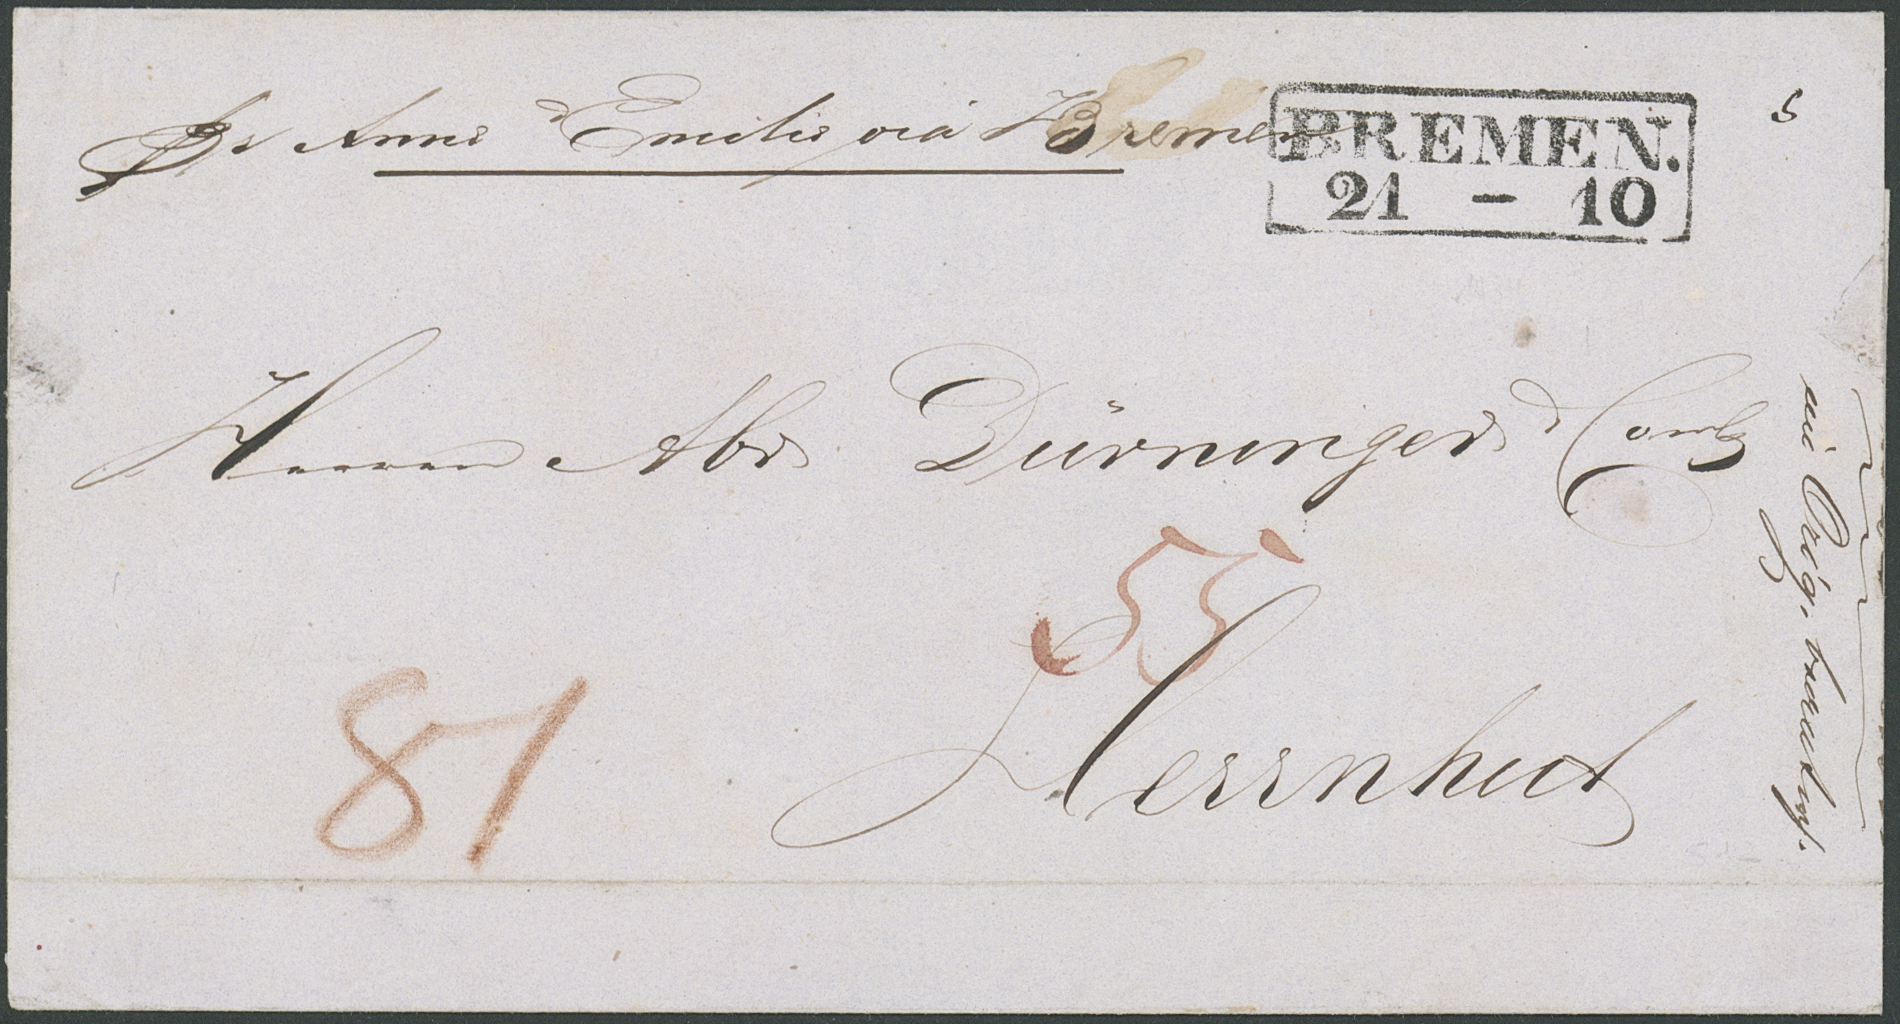 Pr Anna & Emilie via Bremen
BREMEN.
21 - 10
Herren Abr Dürninger & Comp
55
Herrnhut
81